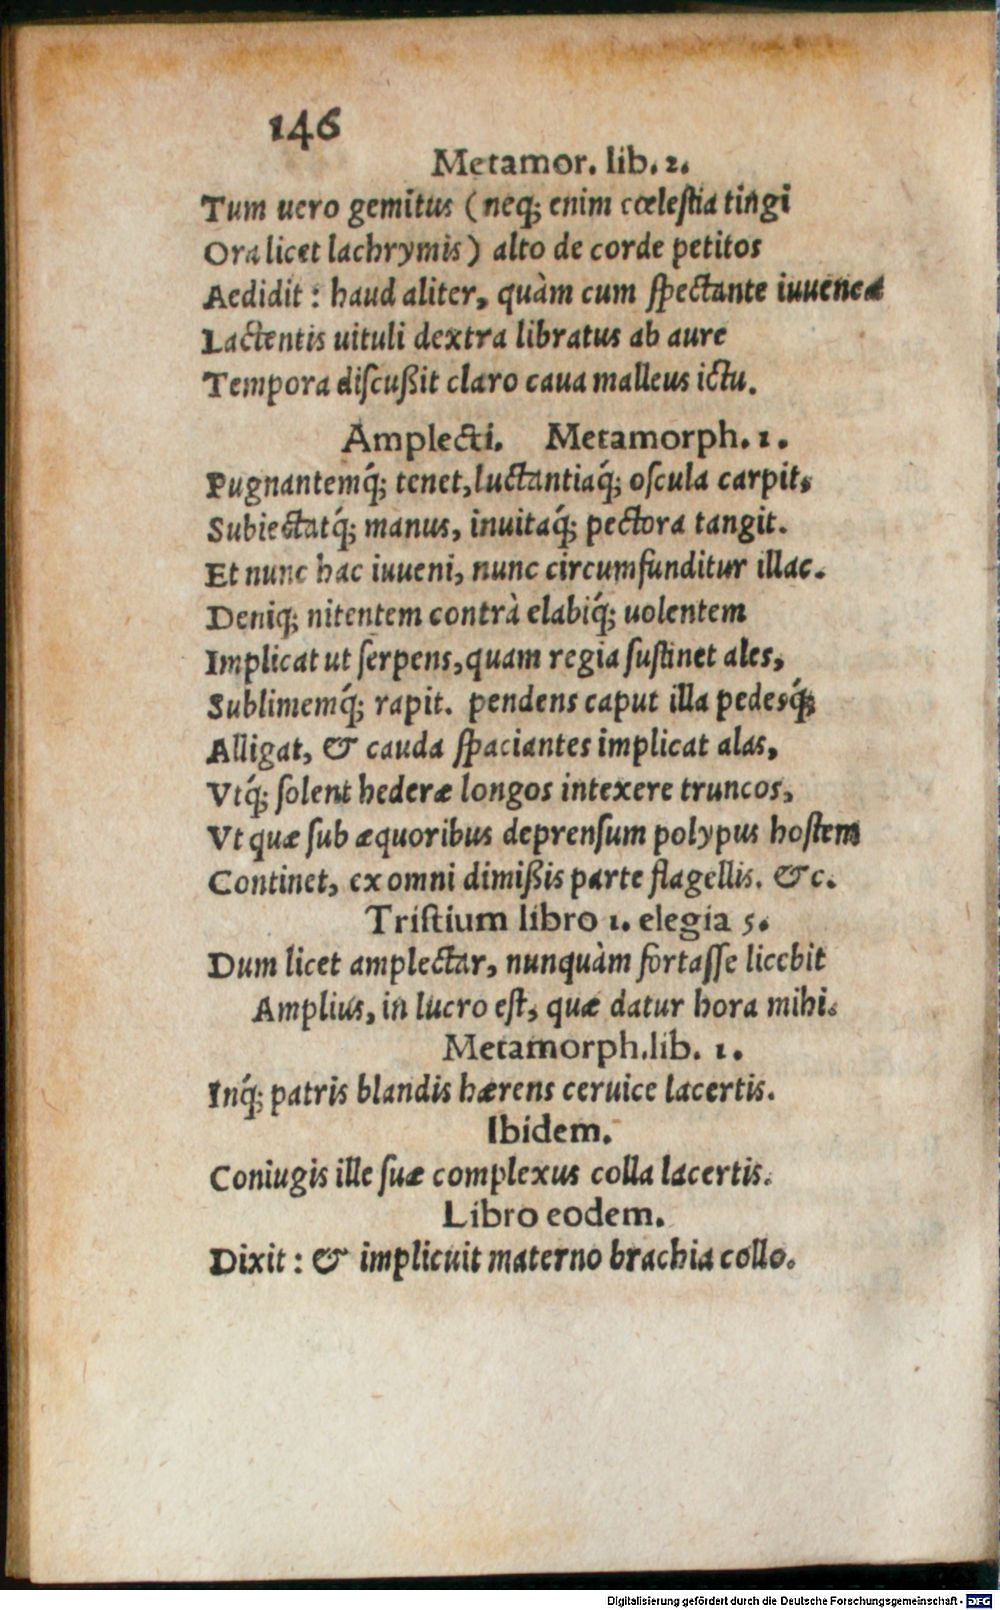 146
Metamor. lib. 2.
Tum uero gemitus (neq; enim cœlestia tingi
Ora licet lachrymis) alto de corde petitos
Aedidit : haud aliter, quàm cum spectante iuuenca
Lactentis uituli dextra libratus ab aure
Tempora discußit claro caua malleus ictu.
Amplecti. Metamorph. 1.
Pugnantemq́; tenet, luctantiaq́; oscula carpit,
Subiectatq́; manus, inuitaq́; pectora tangit.
Et nunc hac iuueni, nunc circumfunditur illac.
Deniq; nitentem contrà elabiq́; uolentem
Implicat ut serpens, quam regia sustinet ales,
Sublimemq́; rapit. pendens caput illa pedesq́;
Alligat, & cauda spaciantes implicat alas,
Vtq́; solent hederæ longos intexere truncos,
Vt quæ sub æquoribus deprensum polypus hostem
Continet, ex omni dimißis parte flagellis. &c.
Tristium libro 1. elegia 5.
Dum licet amplectar, nunquàm fortasse licebit
Amplius, in lucro est, quæ datur hora mihi.
Metamorph.lib. 1.
Inq́; patris blandis hærens ceruice lacertis.
Ibidem.
Coniugis ille suæ complexus colla lacertis.
Libro eodem.
Dixit : & implicuit materno brachia collo.
Digitalisierung gefördert durch die Deutsche Forschungsgemeinschaft - DFG